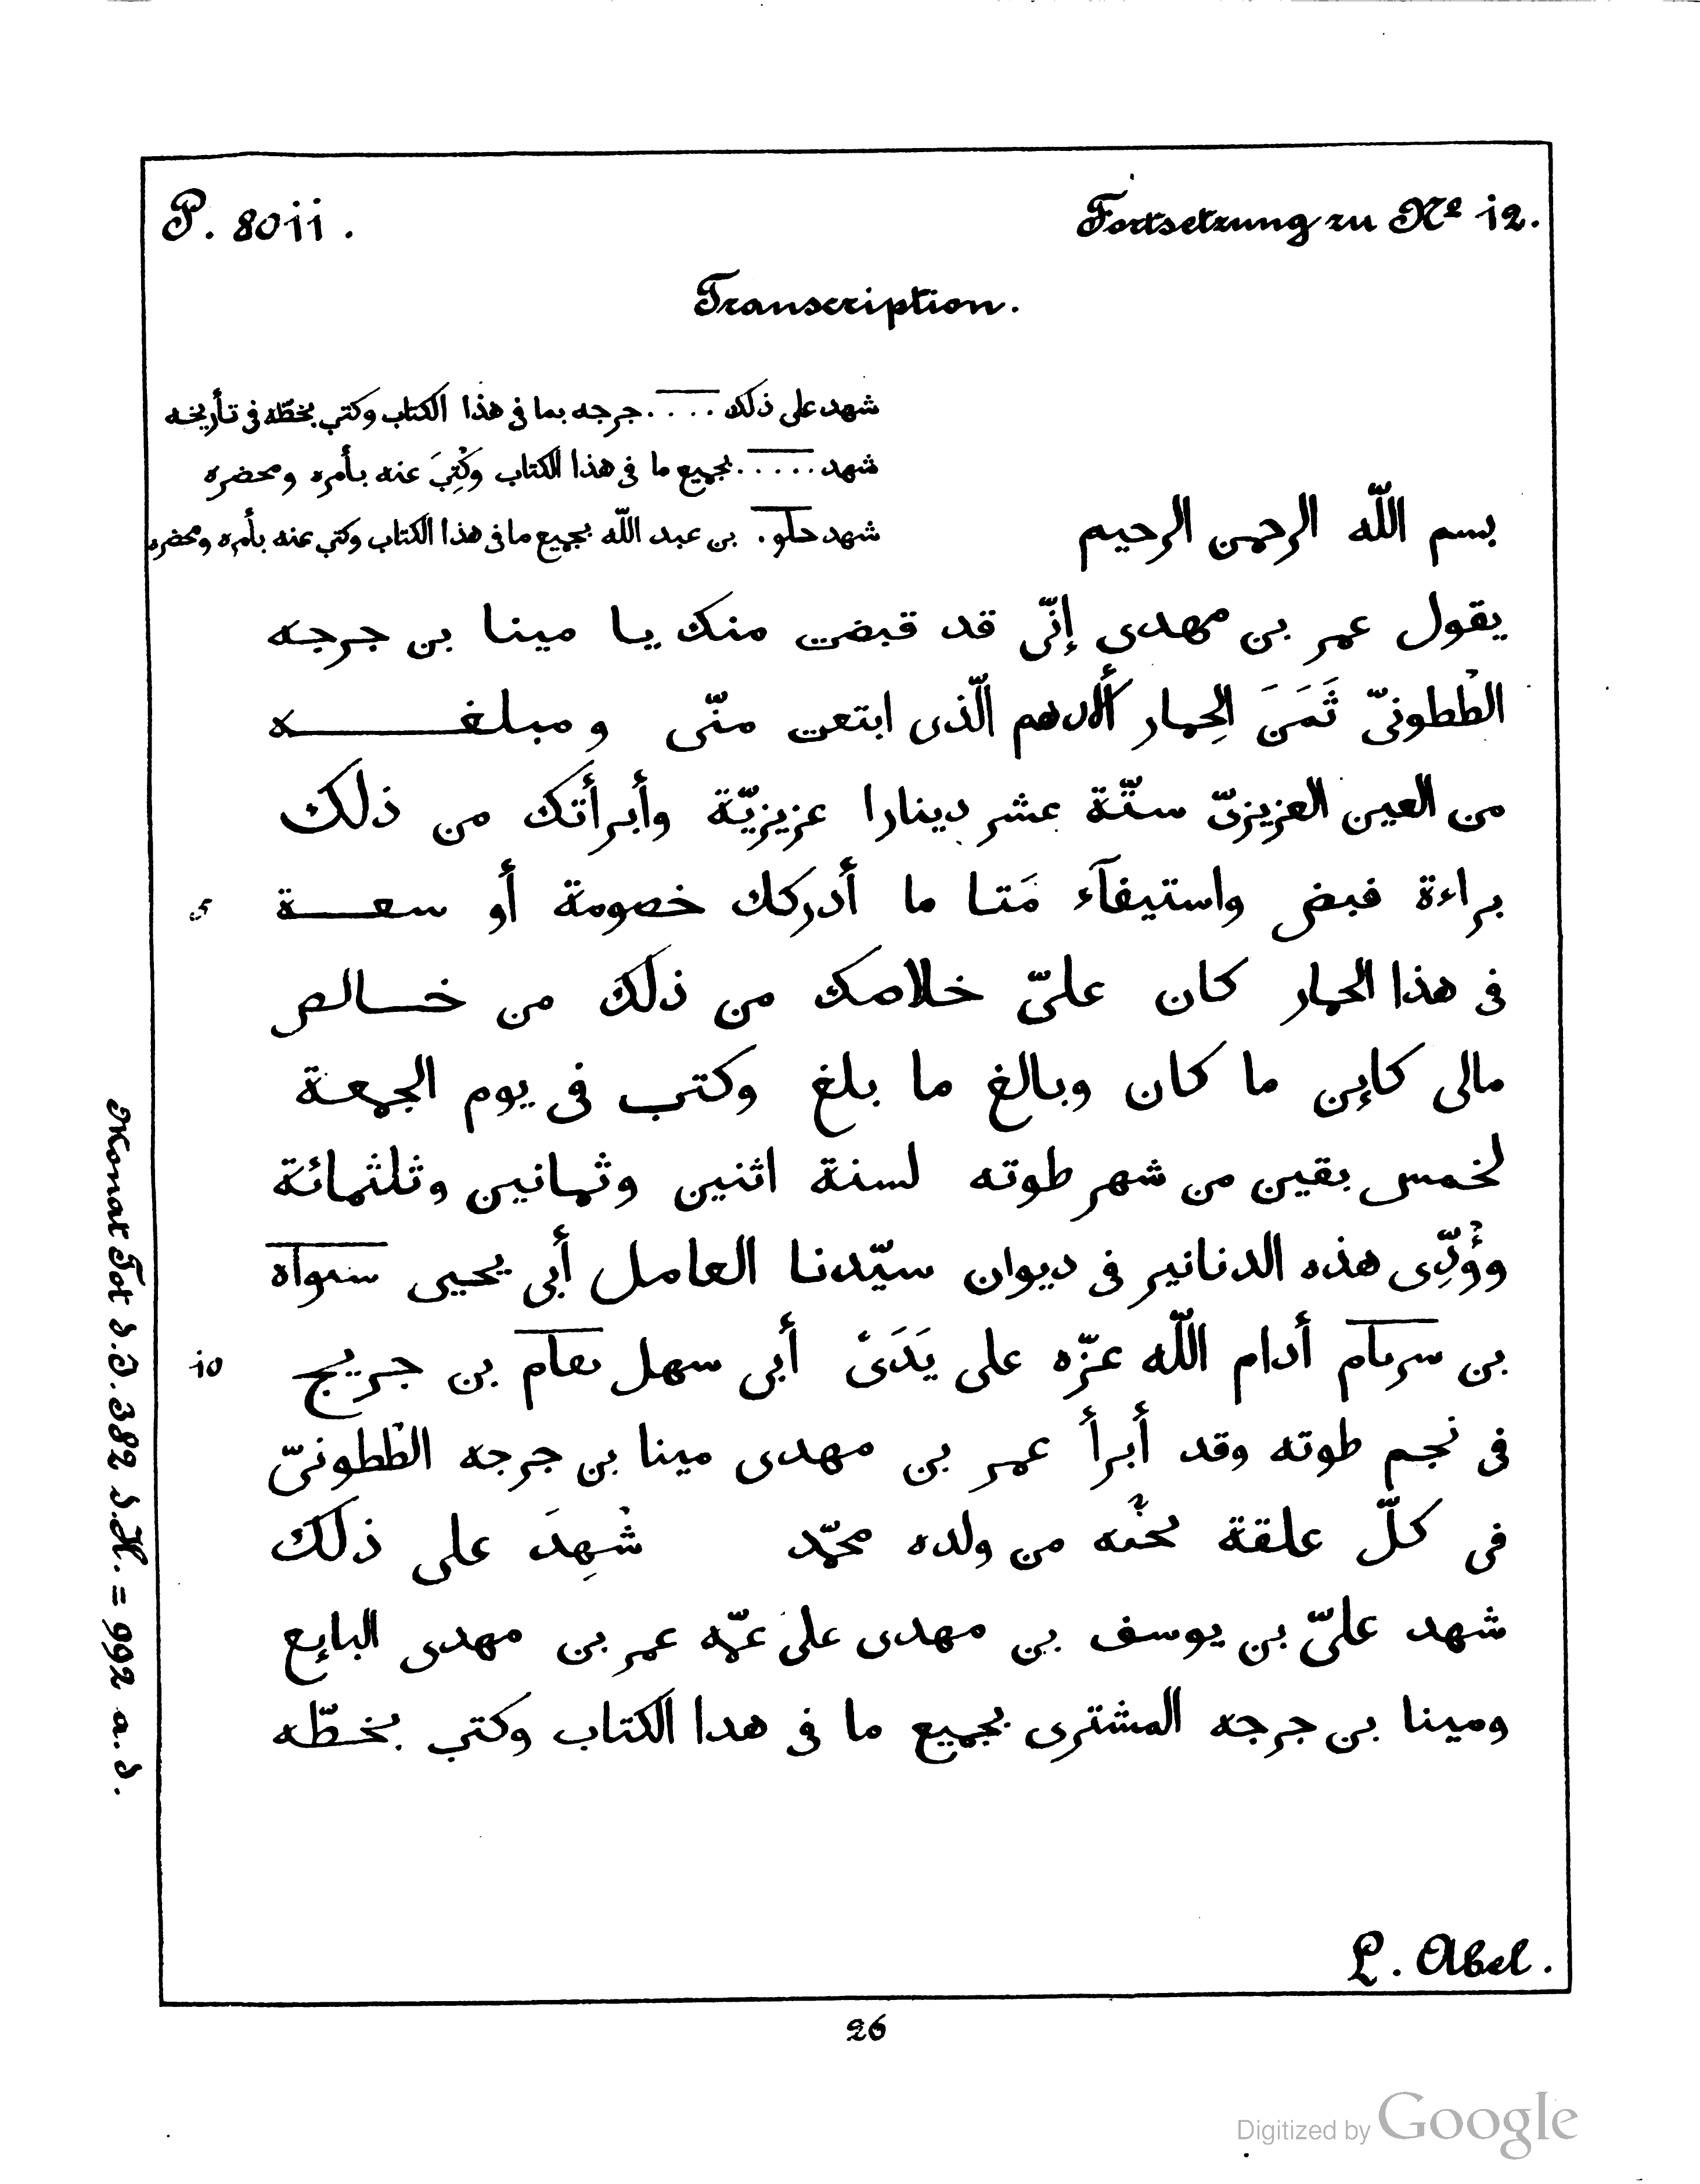 P. 8011.
Fortsetzung zu No 12.
Transcription.
شهد على ذلك .... جرجه بما فى هذا الكتاب وكتب بخطّه فى تأريخه
شهد ..... بجميع ما فى هذا الكتاب وكُتِبَ عنه بأمره ومحضره
شهد حلو. بن عبد اللّه بجميع ما فى هذا الكتاب وكتب عنه بأمره ومحضره
بسم اللّه الرحمن الرحيم
يقول عمر بن مهدى إنّى قد قبضت منك يا مينا بن جرجه
الطُطونىّ ثَمَنَ الحِمار ألادهم الّذى ابتعت منّى ومبلغه
من العين العزيزىّ ستّة عشر دينارا عزيزيّة وأبرأتك من ذلك
5 براءة قبض واستيفآء مَتا ما أدركك خصومة أو سعة
فى هذا الحمار كان علىّ خلاصك من ذلك من خالص
مالى كاين ما كان وبالغ ما بلغ وكتب فى يوم الجمعة
لخمس بقين من شهر طوته لسنة اثنين وثمانين وثلثمائة
وؤُدِّى هذه الدنانير فى ديوان سيّدنا العامل أبى يحيى
10 بن أدام اللّه عزّه على يَدَىْ أبى سهل بن جريج
فى نجم طوته وقد أبرأ عمر بن مهدى مينا بن جرجه الطُطونىّ
فى كلّ علقة من ولده محمّد شُهِدَ على ذلك
شهد علىّ بن يوسف بن مهدى على عمّه عمر بن مهدى البايع
ومينا بن جرجه المشترى بجميع ما فى هدا الكتاب وكتب بخطّه
Monat Tot d.J. 382 d.H. = 992 a.d.
L. Abel.
26
Digitized by Google